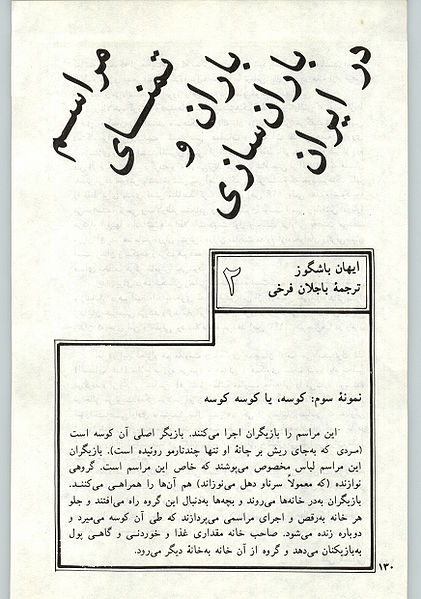 مراسم
تمنای
باران و
باران‌سازی
در ایران
ایهان باشگوز
ترجمهٔ باجلان فرخی
۲
نمونهٔ سوم: کوسه، یا کوسه کوسه
این مراسم را بازیگران اجرا می‌کنند. بازیگر اصلی آن کوسه است
(مردی که به‌جای ریش بر چانهٔ او تنها چندتارمو روئیده است). بازیگران
این مراسم لباس مخصوص می‌پوشند که خاص این مراسم است. گروهی
نوازنده (که معمولاً سرناو دهل می‌نوزاند) هم آن‌ها را همراهی می‌کنند.
بازیگران به‌در خانه‌ها می‌روند و بچه‌ها به‌دنبال این گروه راه می‌افتند و جلو
هر خانه به‌رقص و اجرای مراسمی می‌پردازند که طی آن کوسه می‌میرد و
دوباره زنده می‌شود. صاحب خانه مقداری غذا و خوردنی و گاهی پول
به‌بازیکنان می‌دهد و گروه از آن خانه به‌خانهٔ دیگر می‌رود.
۱۳۰